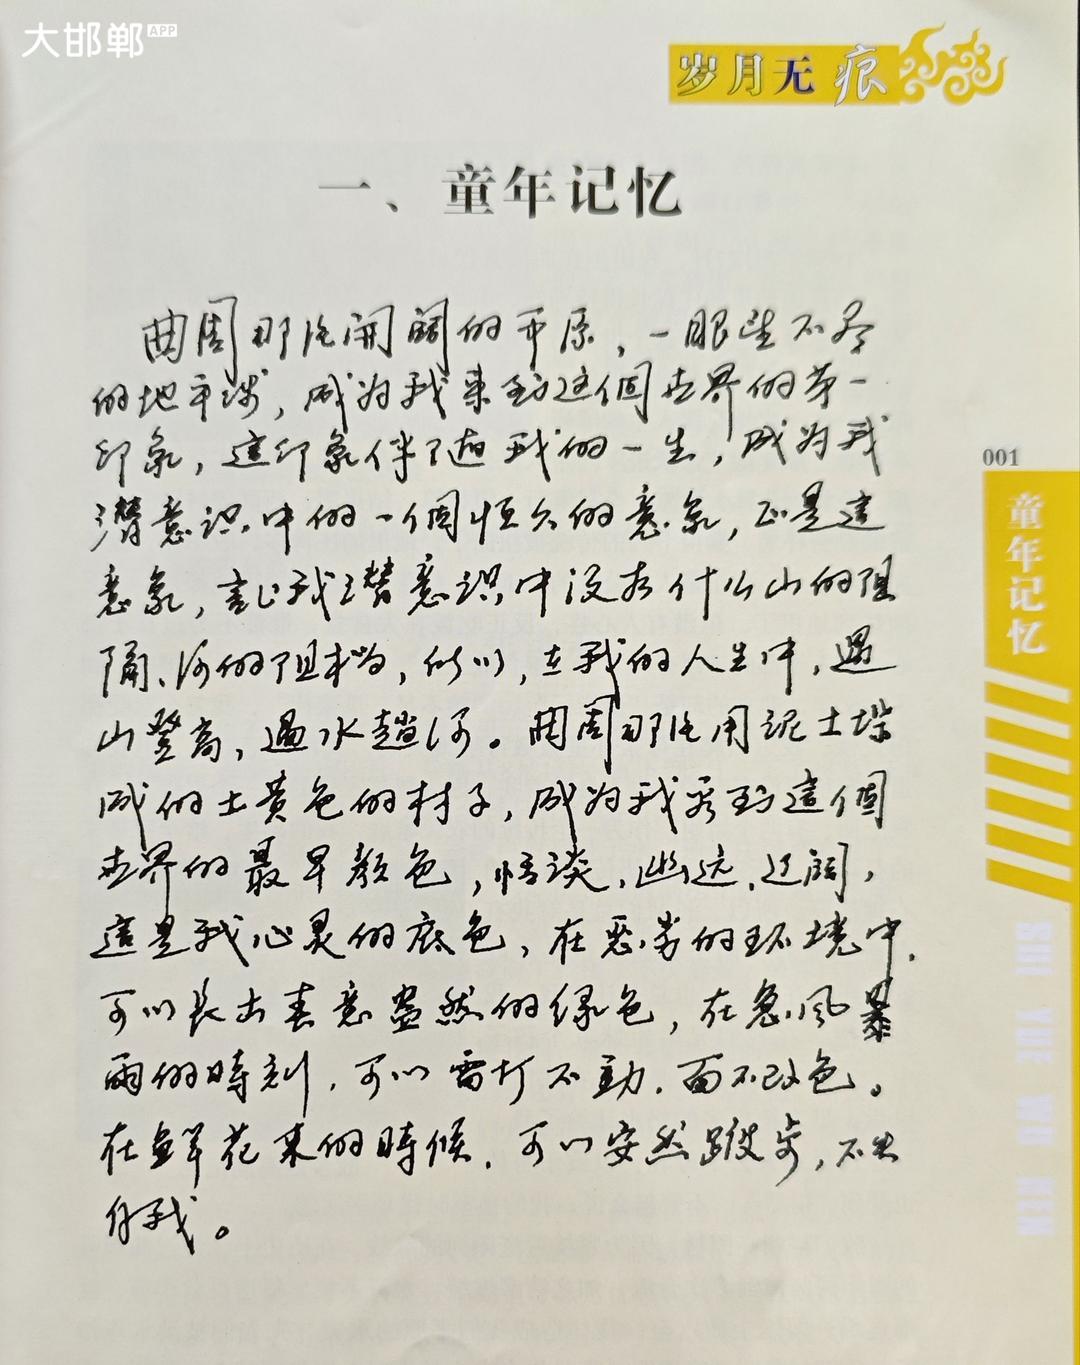 大邯郸APP
岁月无痕
一、童年记忆
曲周那片開闊的平原，一眼望不尽
的地平线，成为我来到这個世界的第一
印象，這印象伴随我的一生，成为我
潜意识中的一個恒久的意象，正是這
意象，让我潜意识中没有什么山的阻
隔、河的阻挡，所以，在我的人生中，遇
山登高，遇水趟河。曲周那片用泥土垛
成的土黄色的村子，成为我看到這個
世界的最早颜色，恬淡、幽远、辽阔，
這是我心灵的底色，在恶劣的环境中，
可以长出春意盎然的绿色，在急风暴
雨的時刻，可以雷打不動，面不改色。
在鲜花来的時候，可以安然踱步，不失
自我。
001
童年记忆
SUI YUE WU HEN